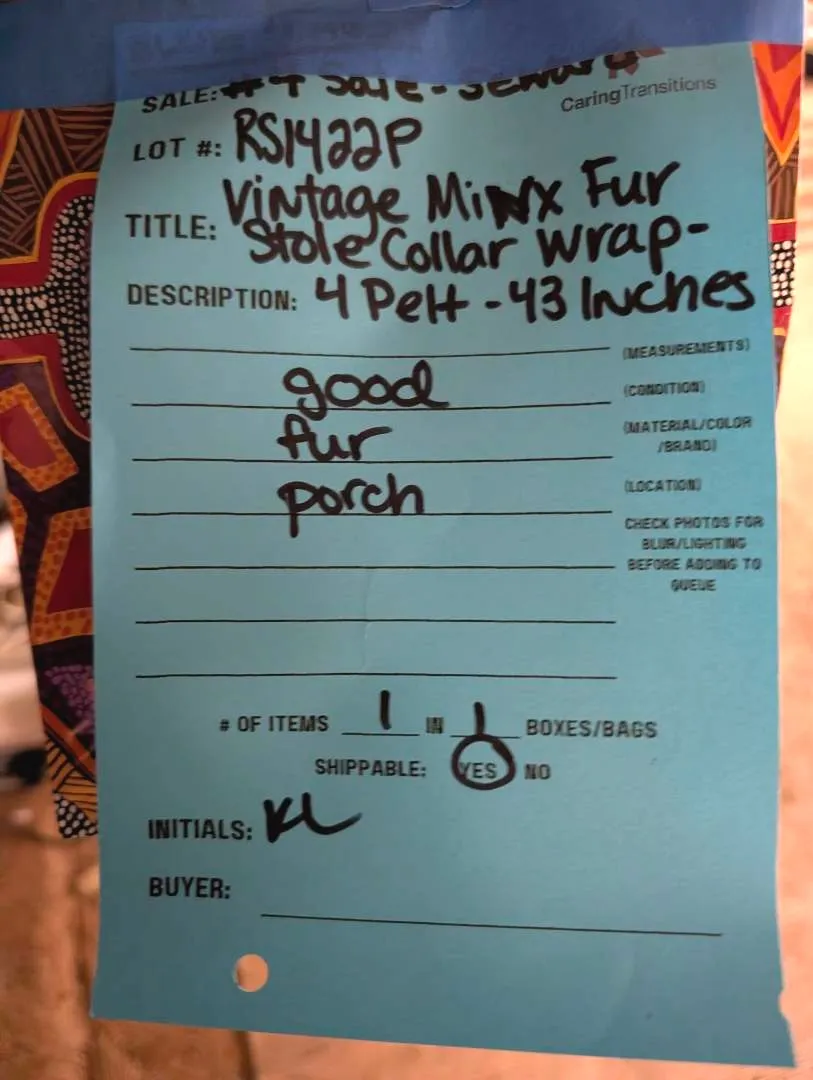 SALE: #4 Sale - Seward
CaringTransitions
LOT #: RS1422P
TITLE: Vintage Minx Fur
Stole Collar Wrap-
DESCRIPTION: 4 Pelt - 43 Inches
(MEASUREMENTS)
good (CONDITION)
fur (MATERIAL/COLOR
/BRAND)
porch (LOCATION)
CHECK PHOTOS FOR
BLUR/LIGHTING
BEFORE ADDING TO
QUEUE
# OF ITEMS 1 IN 1 BOXES/BAGS
SHIPPABLE: YES NO
INITIALS: KL
BUYER: